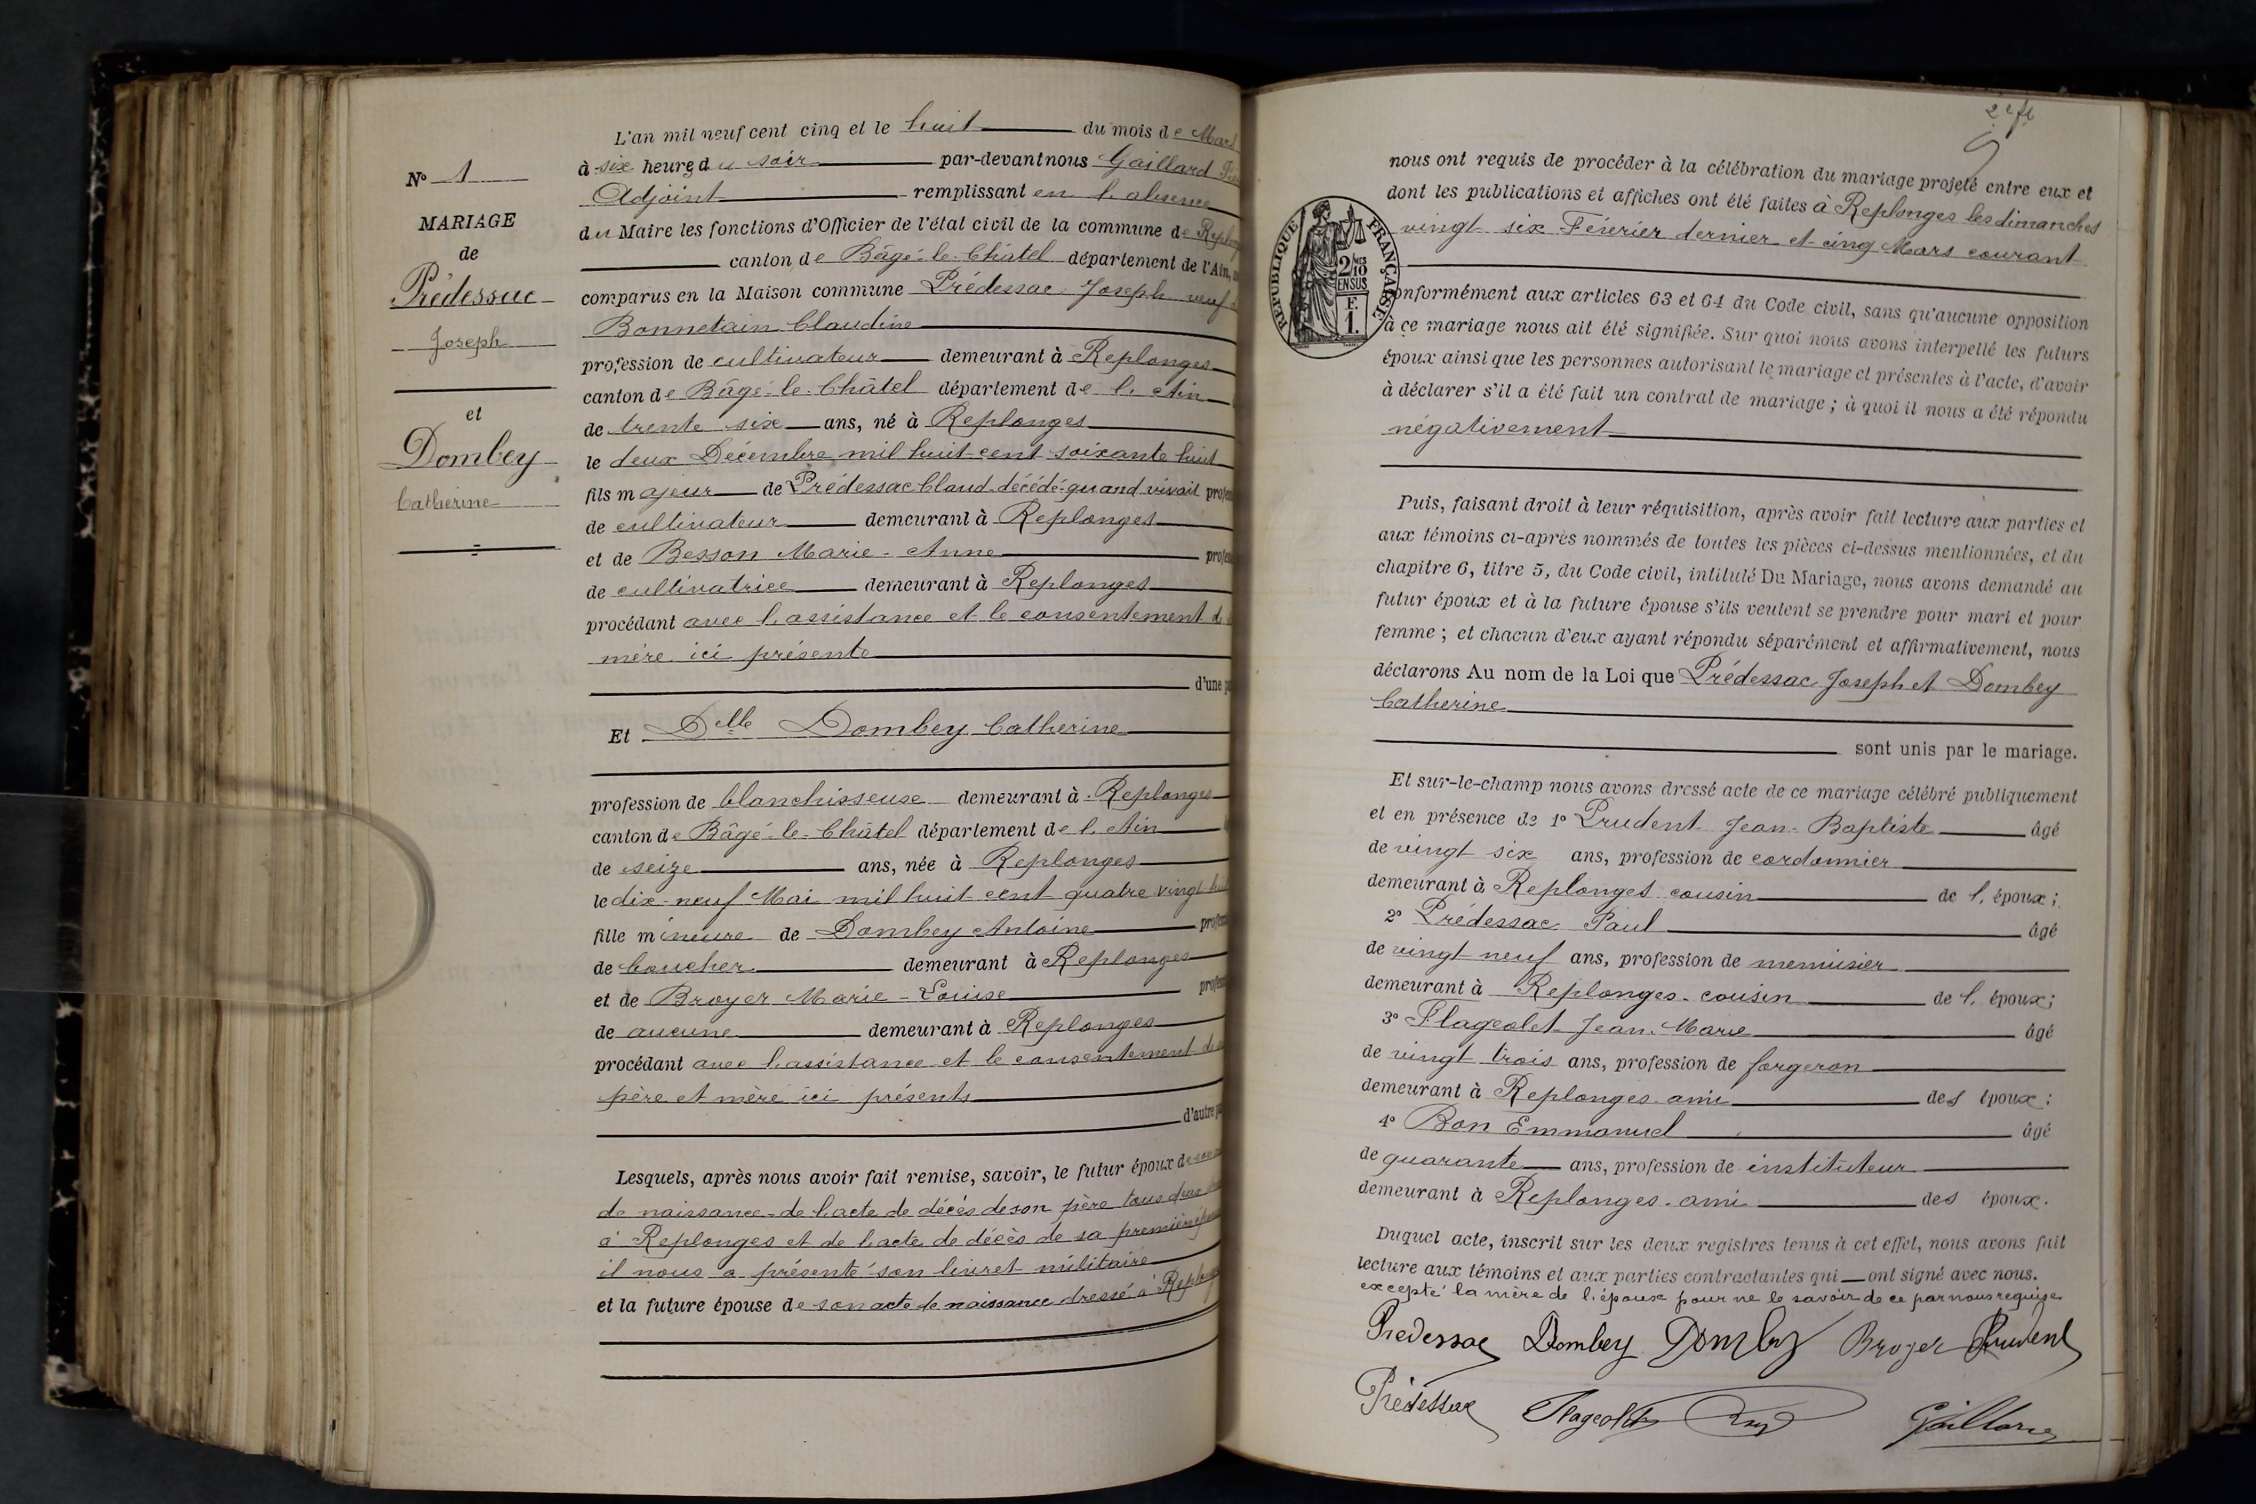 L'an mil neuf cent cinq et le huit du mois de Mars
à six heures du soir par-devant nous Gaillard
Adjoint remplissant en l'absence
du Maire les fonctions d'Officier de l'état civil de la commune de
canton de Bâgé-le-Châtel département de l'Ain,
comparus en la Maison commune Prédessac Joseph veuf
Bonnetain Claudine
profession de cultivateur demeurant à Replonges
canton de Bâgé-le-Châtel département de l'Ain
de trente six ans, né à Replonges
le deux Décembre mil huit cent soixante huit
fils majeur de Prédessac Claud décédé quand vivait
de cultivateur demeurant à Replonges
et de Besson Marie-Anne
de cultivatrice demeurant à Replonges
procédant avec l'assistance et le consentement de
mère ici présente
d'une
Et Delle Dombey Catherine
profession de blanchisseuse demeurant à Replonges
canton de Bâgé-le-Châtel département de l'Ain
de seize ans, née à Replonges
le dix-neuf Mai mil huit cent quatre vingt huit
fille mineure de Dombey Antoine
de boucher demeurant à Replonges
et de Broyer Marie-Louise
de aucune demeurant à Replonges
procédant avec l'assistance et le consentement de
père et mère ici présents
d'autre
Lesquels, après nous avoir fait remise, savoir, le futur époux de
de naissance de l'acte de décès de son père tous deux
à Replonges et de l'acte de décès de sa première
il nous a présenté son livret militaire
et la future épouse de son acte de naissance dressé à
No 1
MARIAGE
de
Prédessac
Joseph
et
Dombey
Catherine
nous ont requis de procéder à la célébration du mariage projeté entre eux et
dont les publications et affiches ont été faites à Replonges les dimanches
vingt six Février dernier et cinq Mars courant
RÉPUBLIQUE FRANÇAISE
2/10
EN SUS
F.
1.
conformément aux articles 63 et 64 du Code civil, sans qu'aucune opposition
à ce mariage nous ait été signifiée. Sur quoi nous avons interpellé les futurs
époux ainsi que les personnes autorisant le mariage et présentes à l'acte, d'avoir
à déclarer s'il a été fait un contrat de mariage ; à quoi il nous a été répondu
négativement
Puis, faisant droit à leur réquisition, après avoir fait lecture aux parties et
aux témoins ci-après nommés de toutes les pièces ci-dessus mentionnées, et du
chapitre 6, titre 5, du Code civil, intitulé Du Mariage, nous avons demandé au
futur époux et à la future épouse s'ils veulent se prendre pour mari et pour
femme ; et chacun d'eux ayant répondu séparément et affirmativement, nous
déclarons Au nom de la Loi que Prédessac Joseph et Dombey
Catherine
sont unis par le mariage.
Et sur-le-champ nous avons dressé acte de ce mariage célébré publiquement
et en présence de 1° Prudent Jean-Baptiste âgé
de vingt six ans, profession de cordonnier
demeurant à Replonges cousin de l'époux ;
2° Prédessac Paul âgé
de vingt neuf ans, profession de menuisier
demeurant à Replonges cousin de l'époux ;
3° Flageolet Jean-Marie âgé
de vingt trois ans, profession de forgeron
demeurant à Replonges ami des époux ;
4° Bon Emmanuel âgé
de quarante ans, profession de instituteur
demeurant à Replonges ami des époux.
Duquel acte, inscrit sur les deux registres tenus à cet effet, nous avons fait
lecture aux témoins et aux parties contractantes qui ont signé avec nous.
excepté la mère de l'époux pour ne le savoir de ce par nous requise
Predessac Dombey Dombey Broyer Prudent
Prédessac Flageolet Bon Gaillard